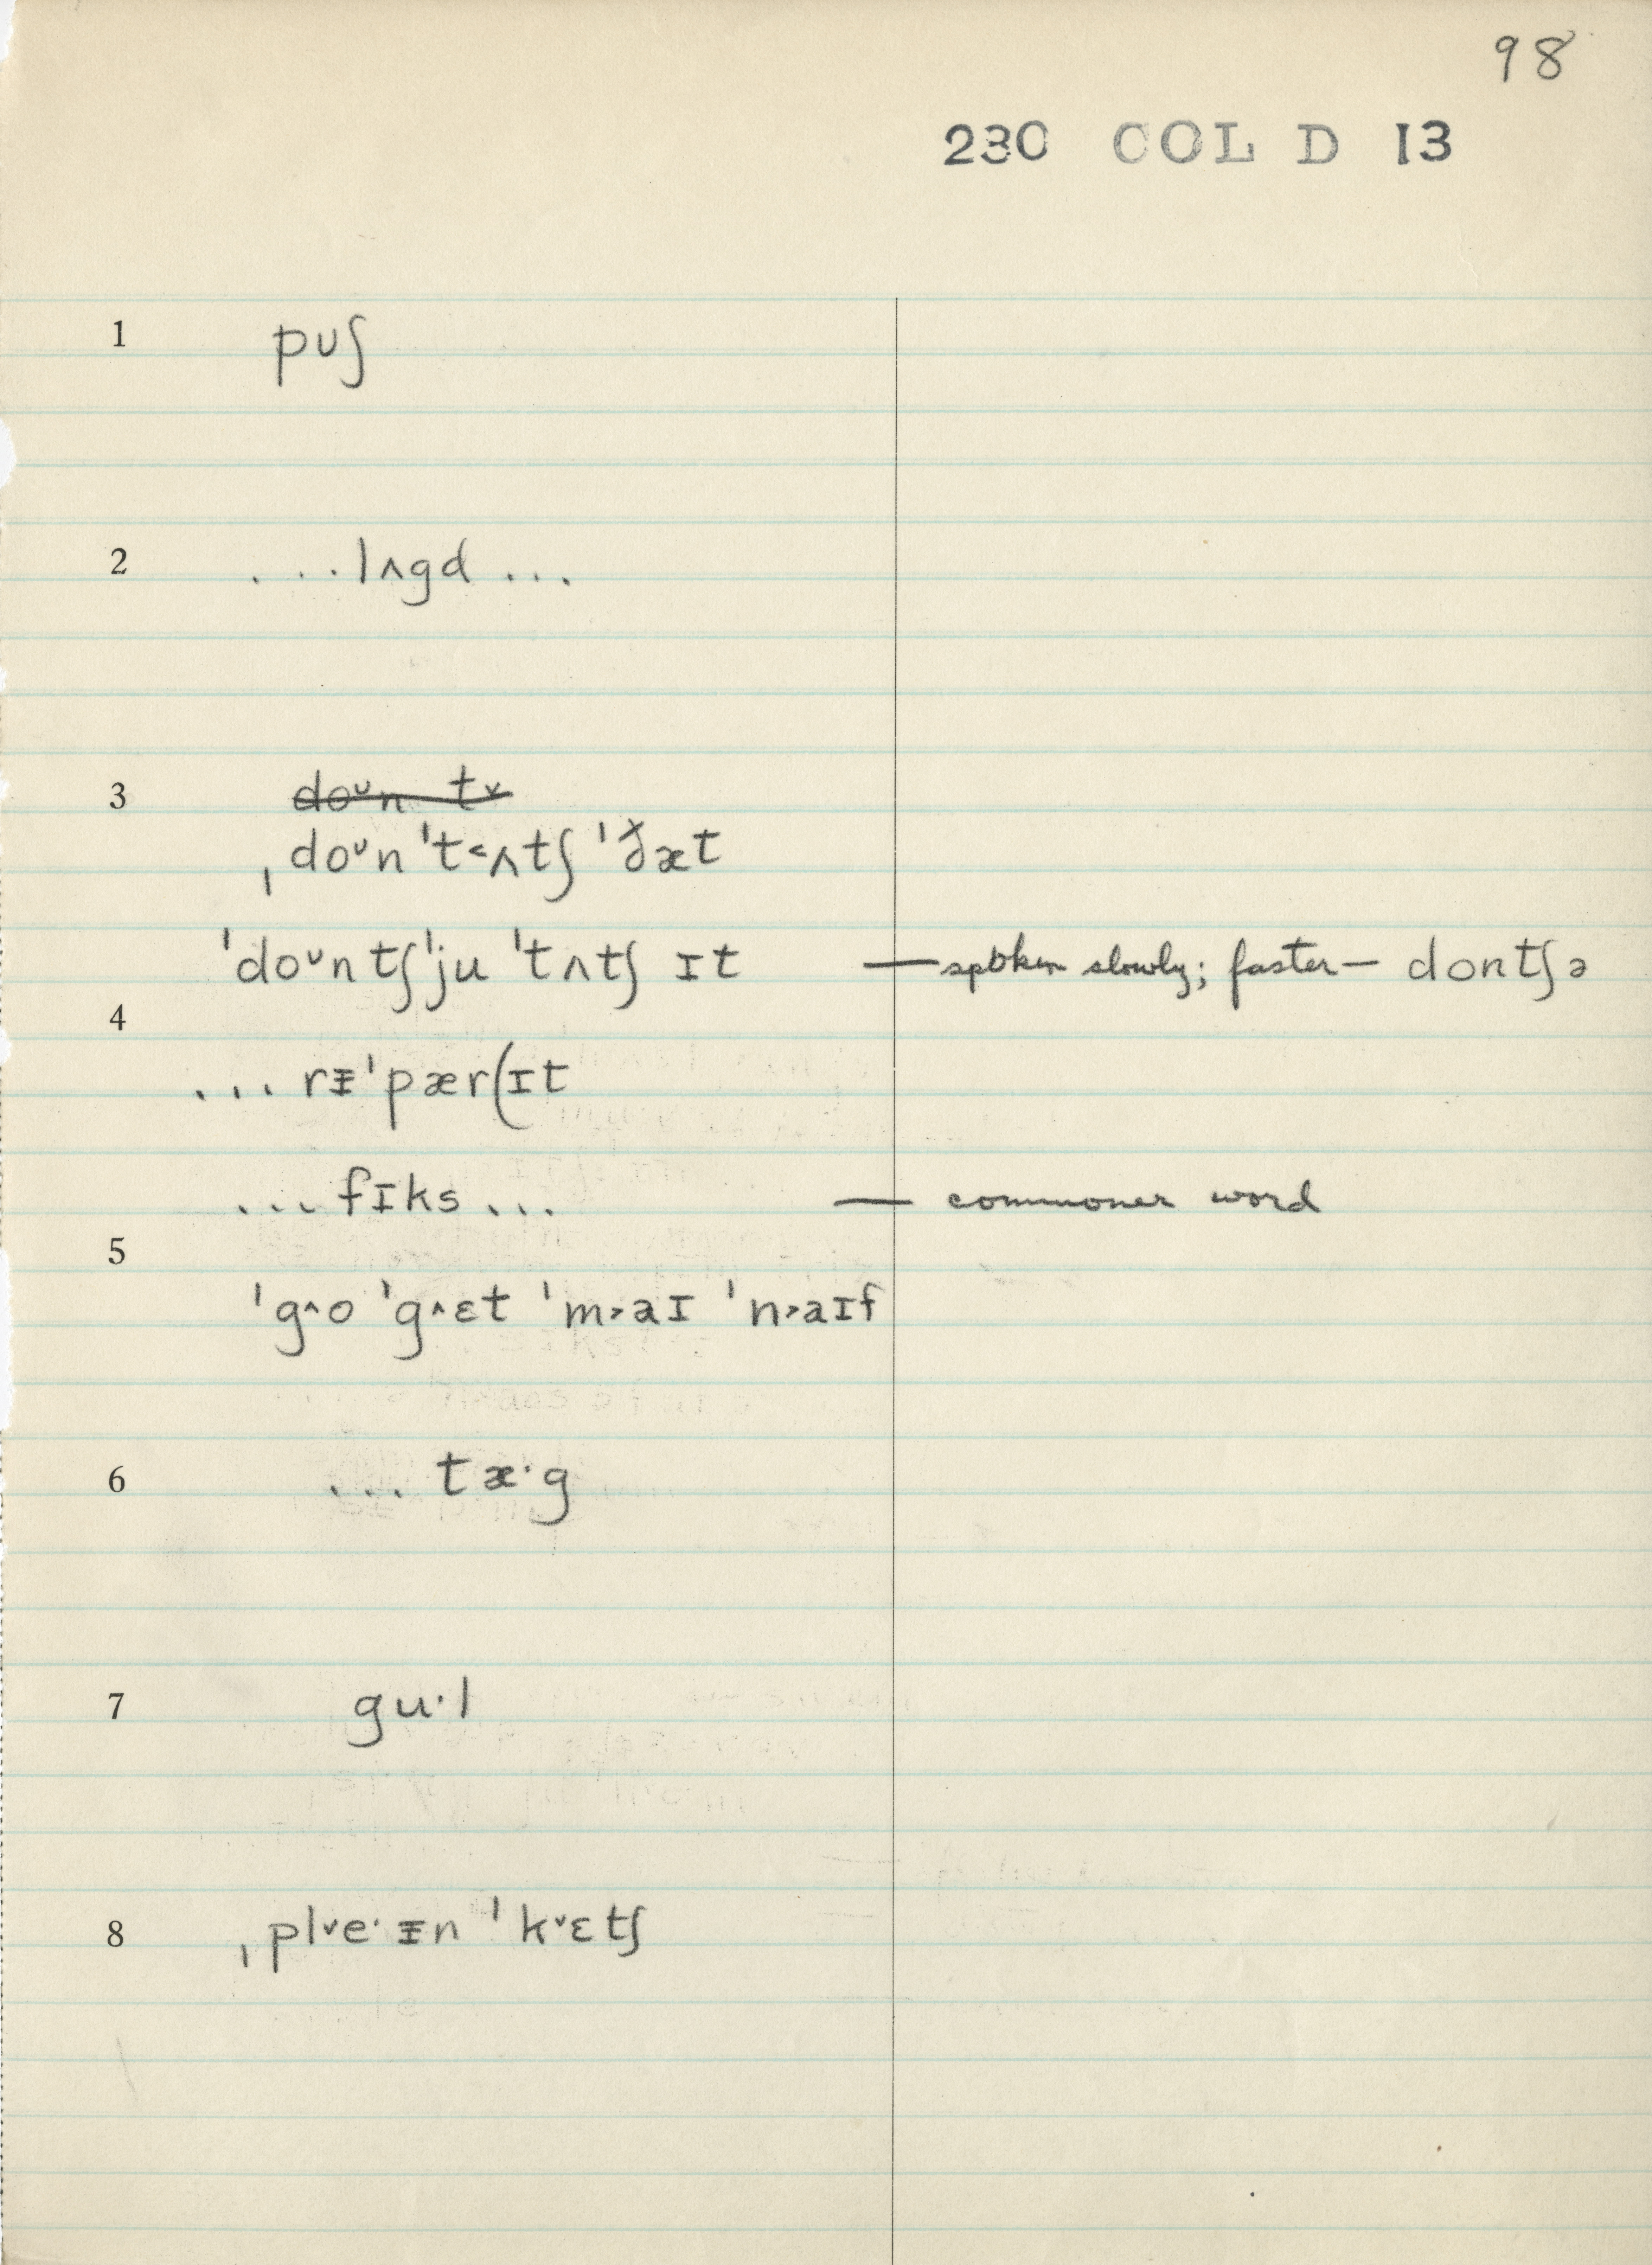 98
230 COL D 13
1 pʊʃ
2 ...lʌgd...
3 doᴜn tv
ˌdoᴜn ˈt˂ʌtʃ ˈðæt
ˈdoᴜntʃˈju ˈtʌtʃ ɪt — spoken slowly; faster— dontʃə
4
...rᵻˈpær(ɪt
...fɪks... — commoner word
5
ˈg˄o ˈg˄ɛt ˈm˃aɪ ˈn˃aɪf
6 ...tæ·g
7 gu·l
8 ˌpl˅e·ᵻn ˈk˅ɛtʃ